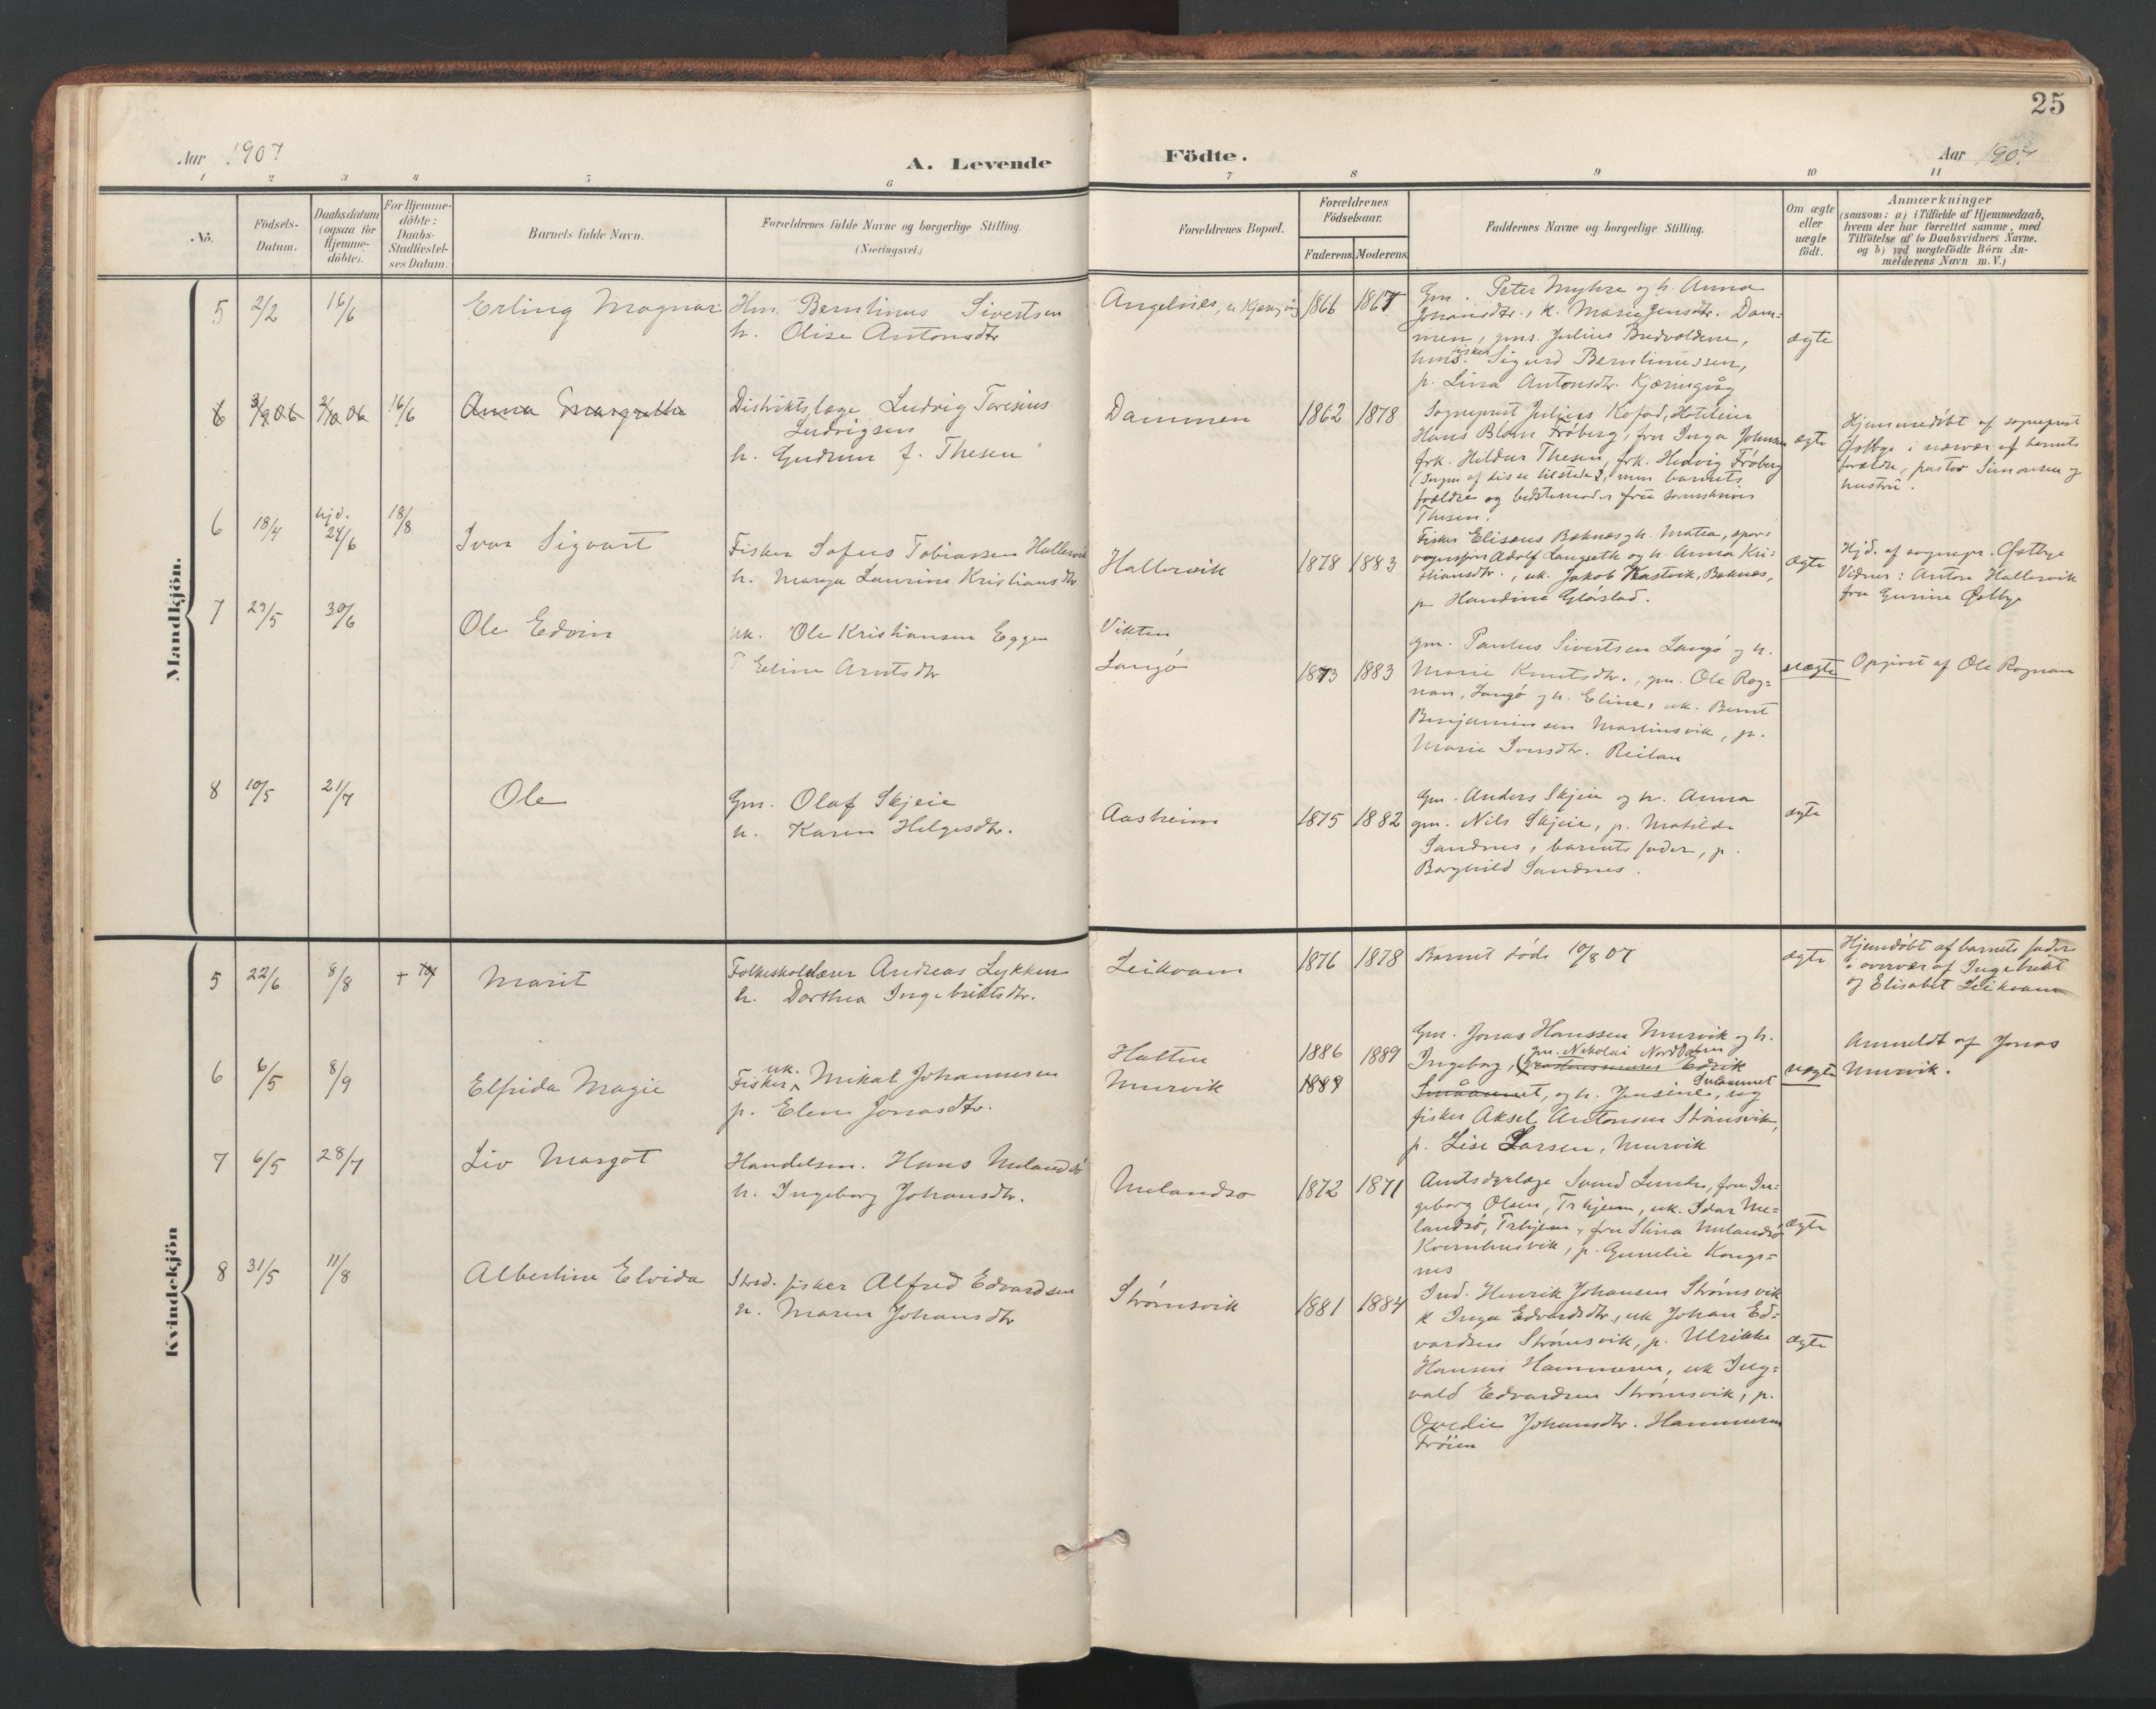 25
Aar 1907
A. Levende
Födte.
Aar 1907
1 2 3 4 5 6 7 8 9 10 11
No.
Födsels-
Datum.
Daabsdatum
(ogsaa for
Hjemme-
döbte).
For Hjemme-
döbte:
Daabs-
Stadfæstel-
ses Datum.
Barnets fulde Navn.
Forældrenes fulde Navne og borgerlige Stilling.
(Næringsvei.)
Forældrenes Bopæl.
Forældrenes
Födselsaar.
Faderens. Moderens.
Faddernes Navne og borgerlige Stilling.
Om ægte
eller
uægte
födt.
Anmærkninger
(saasom: a) i Tilfælde af Hjemmedaab,
hvem der har forrettet samme, med
Tilföielse af to Daabsvidners Navne,
og b) ved uægtefödte Börn An-
melderens Navn m. V.)
Mandkjön.
5 2/2 16/6 Erling Magnar
Hm. Berntinus Sivertsen
h. Olise Antonsdtr
Angelvies, n Kjæringvåg
1866 1867
Gm. Peter Myhre og h. Anna
Johansdtr., k. Marie Jensdtr. Dam-
men, gms. Julius Bredvoldene,
hms. fisker Sigurd Berntinussen,
p. Lina Antonsdtr. Kjæringvåg
ægte
6 3/9 06 2/10 06 16/6 Anna Margrethe
Distriktslæge Ludvig Toresius
Ludvigsen
h. Gudrun f. Thesen
Dammen
1862 1878
Sogneprest Julius Kofod, Hoteleier
Hans Blom Fröberg, fru Inga Johnsen
frk. Hildur Thesen, frk. Hedvig Fröberg
(Ingen af dis er tilstede), men barnets
foældre og bedstemoder frue
Thesen.
ægte
Hjemmedöbt af sogneprest
Østbye i nærvær af barnets
forældre, pastor Simonsen og
hustru.
6 18/4 hjd. 24/6 18/8 Ivar Sigvart
Fisker Sofus Tobiassen Hallervik
h. Marya Laurine Kristiansdtr
Hallervik
1878 1883
Fisker Elisæus Boknes og h. Matea, spor-
vognsfører Adolf Langseth og h. Anna Kri-
stiansdtr., uk. Jakob Kastvik, Boknes,
p. Handine Glörstad.
Ægte
Hjd. af sognepr. Østbye
Vidner: Anton Hallervik
fru Gurine Østbye
7 29/5 30/6 Ole Edvin
uk. Ole Kristiansen Eggen
P Eline Arntsdtr
Vikten
Langö
1873 1883
gm. Paulus Sivertsen Langö og h.
Marie Knutsdtr., gm. Ole Rog-
nan, Langö og h. Eline, uk. Bernt
Benjaminsen Martinsvik, p.
Marie Iversdtr. Reitan
uægte
Opgivet af Ole Rognan
8 10/5 21/7 Ole
Gm. Olaf Skjeie
h. Karen Helgesdtr.
Aasheim
1875 1882
Gm. Anders Skjeie og h. Anna
gm. Nils Skjeie, p. Matilde
Sandnes, barnets fader, p.
Borghild Sandnes.
ægte
Kvindekjön
5 22/6 8/8 + Marit
Folkeskolelærer Andreas Lykken
h. Dorthea Ingebriktsdtr.
Leikvam
1876 1878
Barnet döde 10/8 07
ægte
Hjemdöbt af barnets fader
i overvær af Ingebrikt
og Elisabet Leikvam
6 6/5 8/9 Elfrida Magie
Fisker uk. Mikal Johannesen
p. Elen Jonasdtr.
Halten
Murvik
1886 1889
1889
Gm. Jonas Hanssen Murvik og h.
Ingeborg, gm. Nikolai Norddalen
Edvik
Småamet, og h. Jensine, ug
fisker Aksel Antonsen Strömsvik,
p. Lise Larsen, Murvik
uægte
Anmeldt af Jonas
Murvik.
7 6/5 28/7 Liv Margot
Handelsm. Hans Melandsö
h. Ingeborg Johansdtr.
Melandsö
1872 1871
Amtsdyrlæge Svend Lunder, fru In-
geborg Olsen, Trhjem, uk. Idar Me-
landsö, Trhjem, fru Stina Melandsö
Kvernhusvik, p. Gunelie Kongs-
nes
ægte
8 31/5 11/8 Albertine Elvida
Strsd. fisker Alfred Edvardsen
h. Maren Johansdtr
Strömsvik
1881 1884
Ind. Henrik Johansen Strömsvik
k Inga Edvardsdtr., uk Johan Ed-
vardsen Strömsvik, p. Ulrikke
Hansen Hammeren, uk Ing-
vald Edvardsen Strömsvik, p.
Ovedie Johansdtr. Hammeren
Fröien
ægte